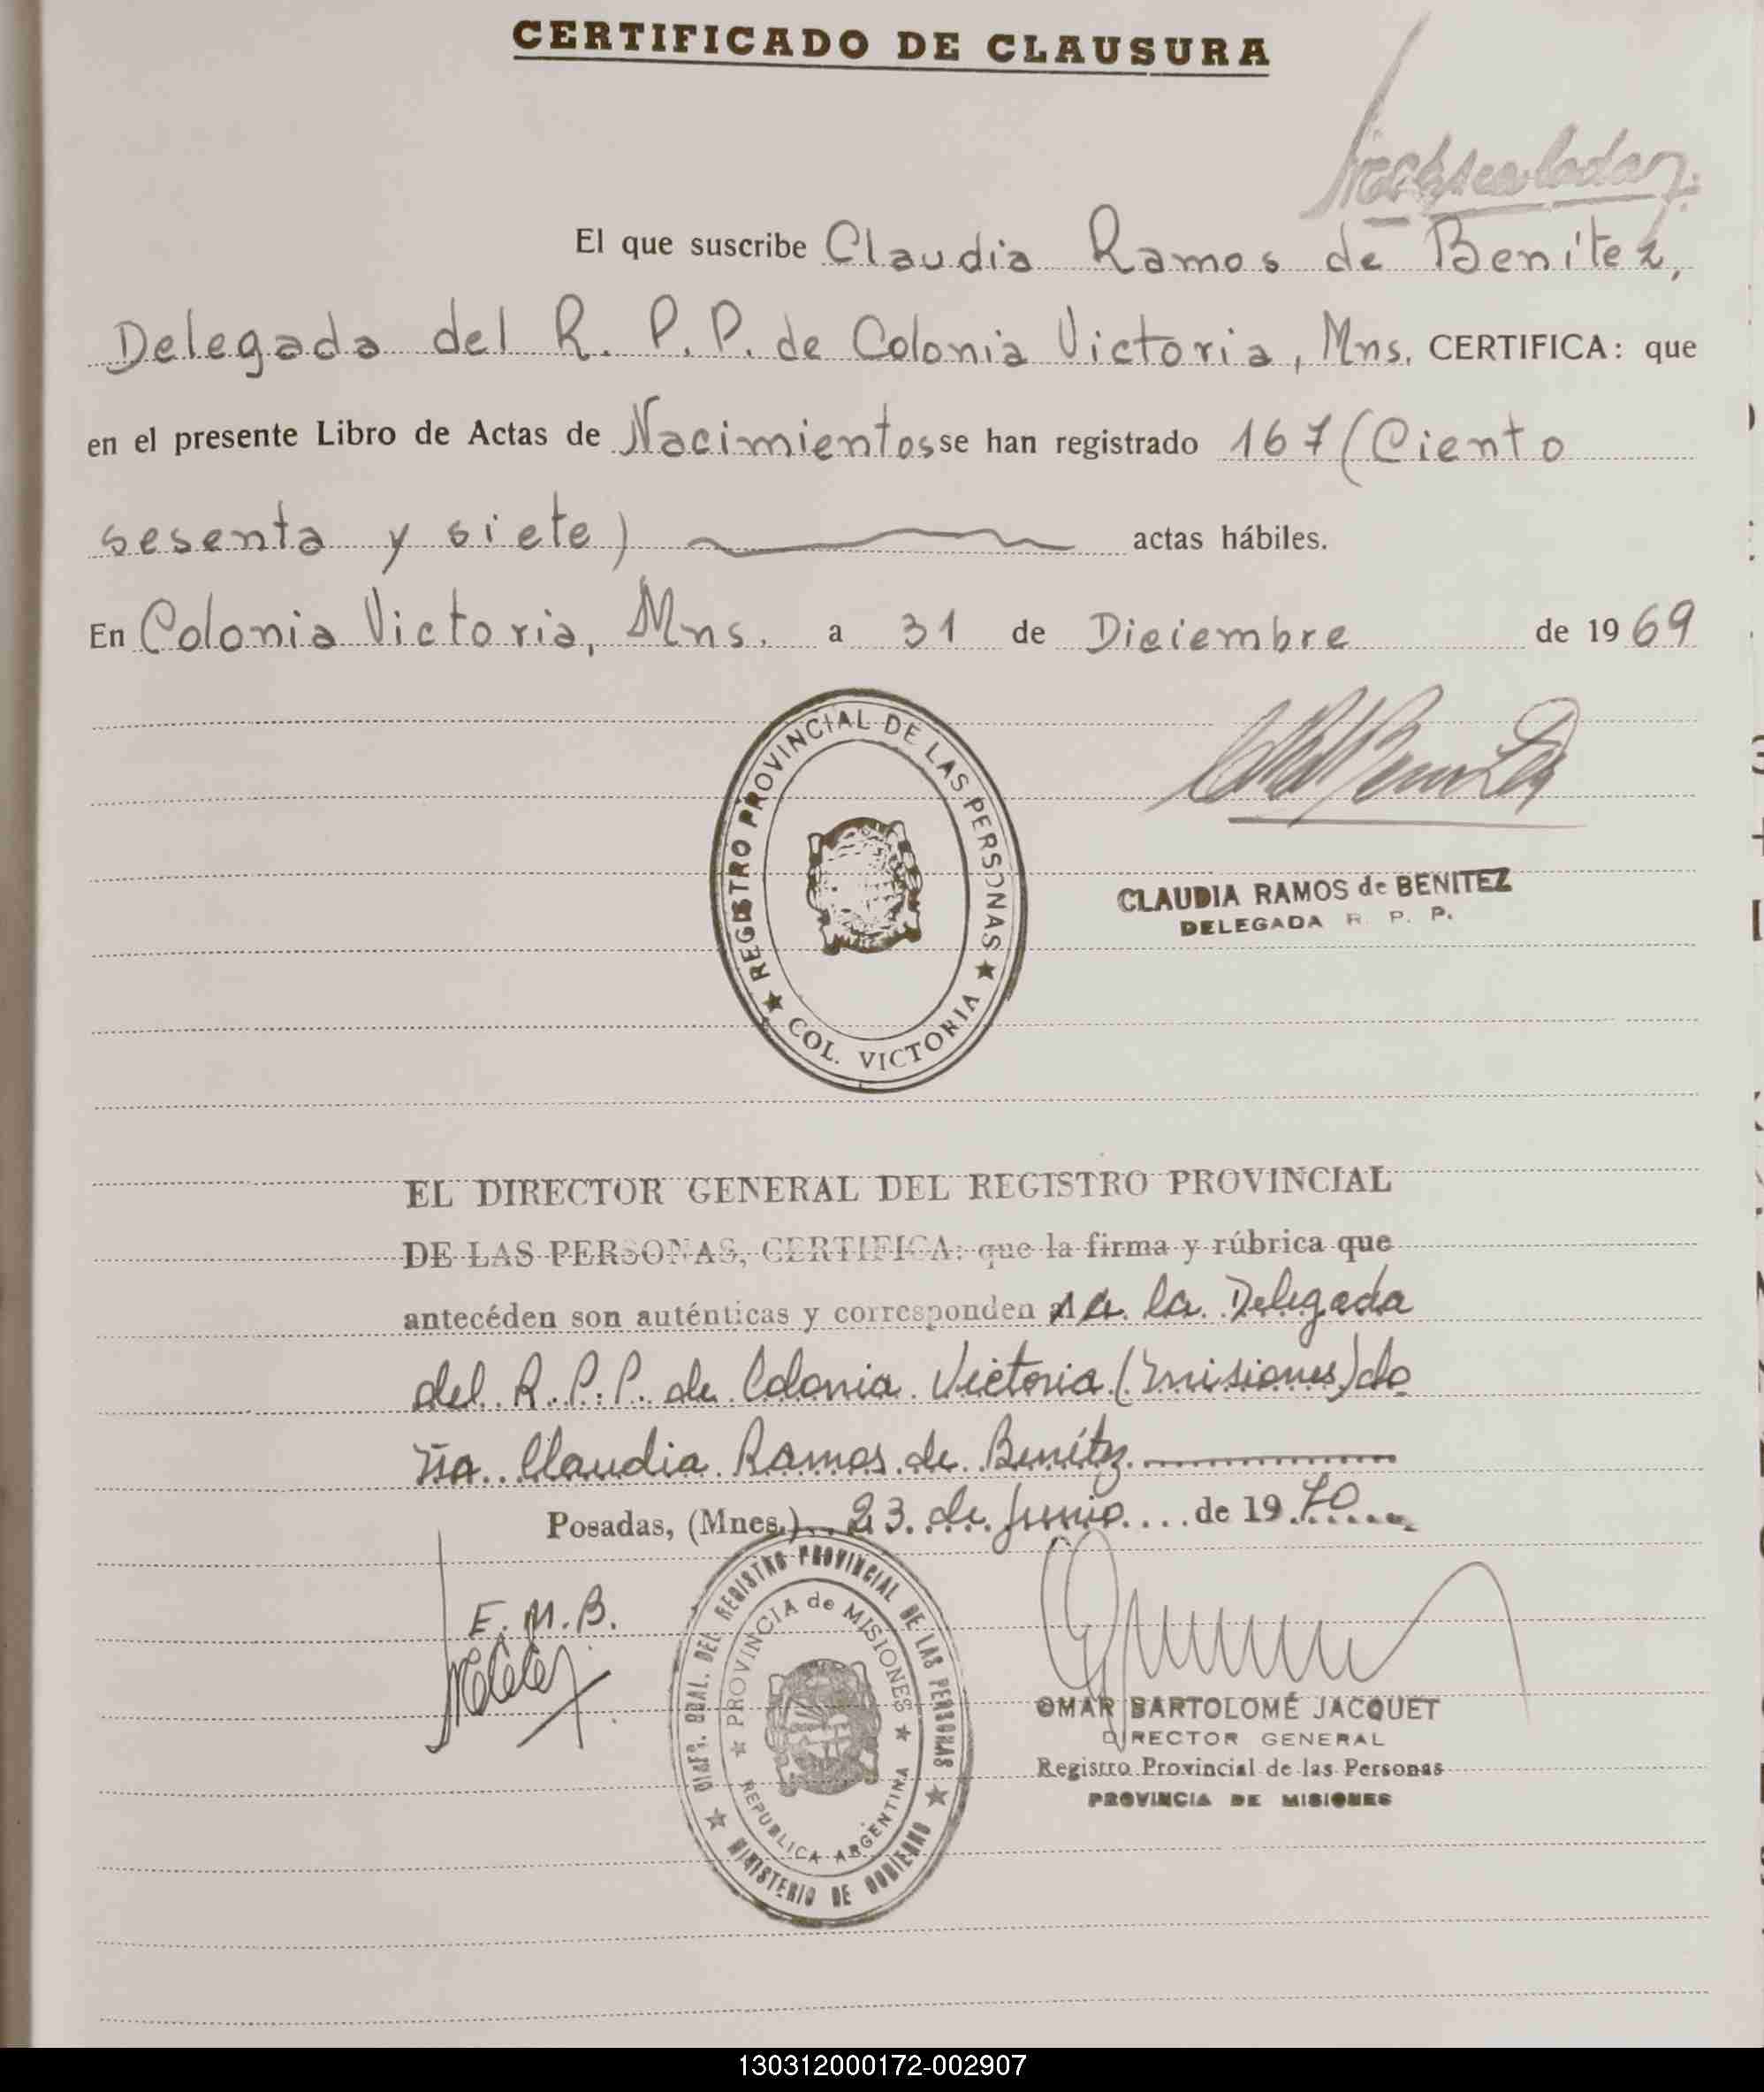 CERTIFICADO DE CLAUSURA
El que suscribe Claudia Ramos de Benítez,
Delegada del R. P. P. de Colonia Victoria, Mns. CERTIFICA: que
en el presente Libro de Actas de Nacimientos se han registrado 167 (Ciento
sesenta y siete) actas hábiles.
En Colonia Victoria, Mns. a 31 de Diciembre de 1969
REGISTRO PROVINCIAL DE LAS PERSONAS
COL. VICTORIA
CLAUDIA RAMOS de BENITEZ
DELEGADA R. P. P.
EL DIRECTOR GENERAL DEL REGISTRO PROVINCIAL
DE LAS PERSONAS, CERTIFICA: que la firma y rúbrica que
antecéden son auténticas y corresponden a la Delegada
del R. P. P. de Colonia Victoria (Misiones) do
ña Claudia Ramos de Benítez
Posadas, (Mnes.) 23 de Junio de 1970
E. M. B.
DIREC. GRAL. DEL REGISTRO PROVINCIAL DE LAS PERSONAS
MINISTERIO DE GOBIERNO
PROVINCIA de MISIONES
REPUBLICA ARGENTINA
OMAR BARTOLOMÉ JACQUET
DIRECTOR GENERAL
Registro Provincial de las Personas
PROVINCIA DE MISIONES
130312000172-002907